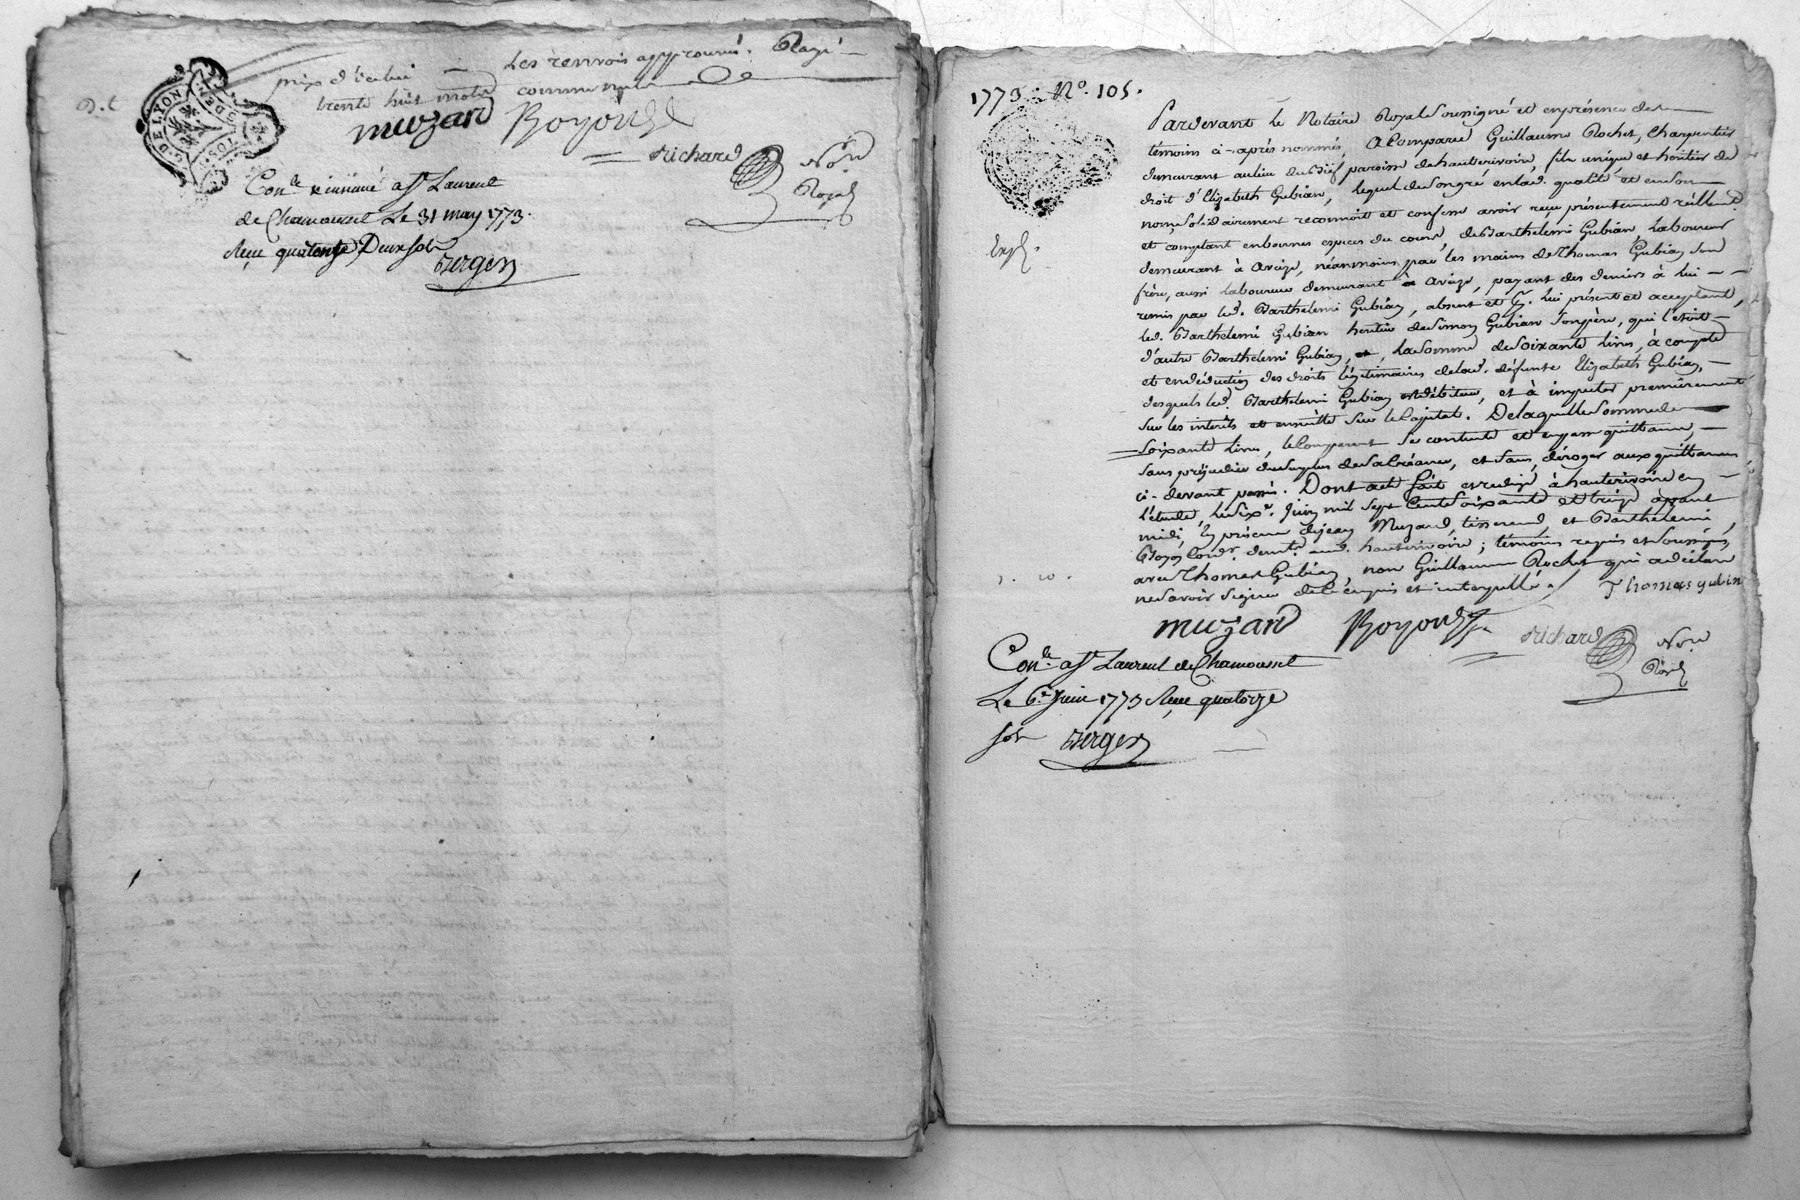 prix d'icelui — Les renvois approuvés. Rayé
trente huit mots comme nuls
muzard Boyoud
Richard Nore
Royal
G. DE LYON
Conle et insinué a St Laurent
de Chamousset Le 31 may 1773.
Reçu quatorze Deux sols
Berger
1773. No. 105.
Pardevant le Notaire Royal soussigné et en présence des
témoins ci-après nommés, a Comparu Guillaume Rochet, Charpentier
demeurant au lieu du Bief paroisse de hauterivoire, fils unique et héritier de
droit d'Elizabeth Gubian, lequel de son gré en lad. qualité et en son
nom solidairement reconnoit et confesse avoir reçu présentement réellemt.
et comptant en bonnes espèces du cours, de Barthelemi Gubian, Laboureur
demeurant à Aveize, néanmoins par les mains de Thomas Gubian son
frère, aussi Laboureur demeurant à Aveize, payant des deniers à lui
remis par led. Barthelemi Gubian, absent et Gr. lui présent et acceptant,
led. Barthelemi Gubian héritier de Simon Gubian son père, qui l'étoit
d'autre Barthelemi Gubian, la somme de soixante livres, à compte
et en déduction des droits légitimaires de lad. défunte Elizabeth Gubian,
desquels led. Barthelemi Gubian est débiteur, et à imputer premièrement
sur les intérêts et ensuitte sur le Capital. De laquelle somme de
soixante livres, le Comparant se contente et en passe quittance,
sans préjudice du surplus de sa créance, et sans déroger aux quittances
ci-devant passées. Dont acte fait et rédigé à hauterivoire en
l'étude, le sixe. Juin mil sept Cent soixante et treize avant
midi, En présence de jean Muzard, tisserand, et Barthelemi
Boyoud Cordr. demts. aud. hauterivoire; témoins requis et soussignés
avec Thomas Gubian, non Guillaume Rochet qui a déclaré
ne savoir signer de ce enquis et interpellé. Thomas gubin
Expé.
muzard Boyoud Richard Nore
Royl
Conle a St Laurent de Chamousset
Le 6e Juin 1773 Reçu quatorze
sols Berger